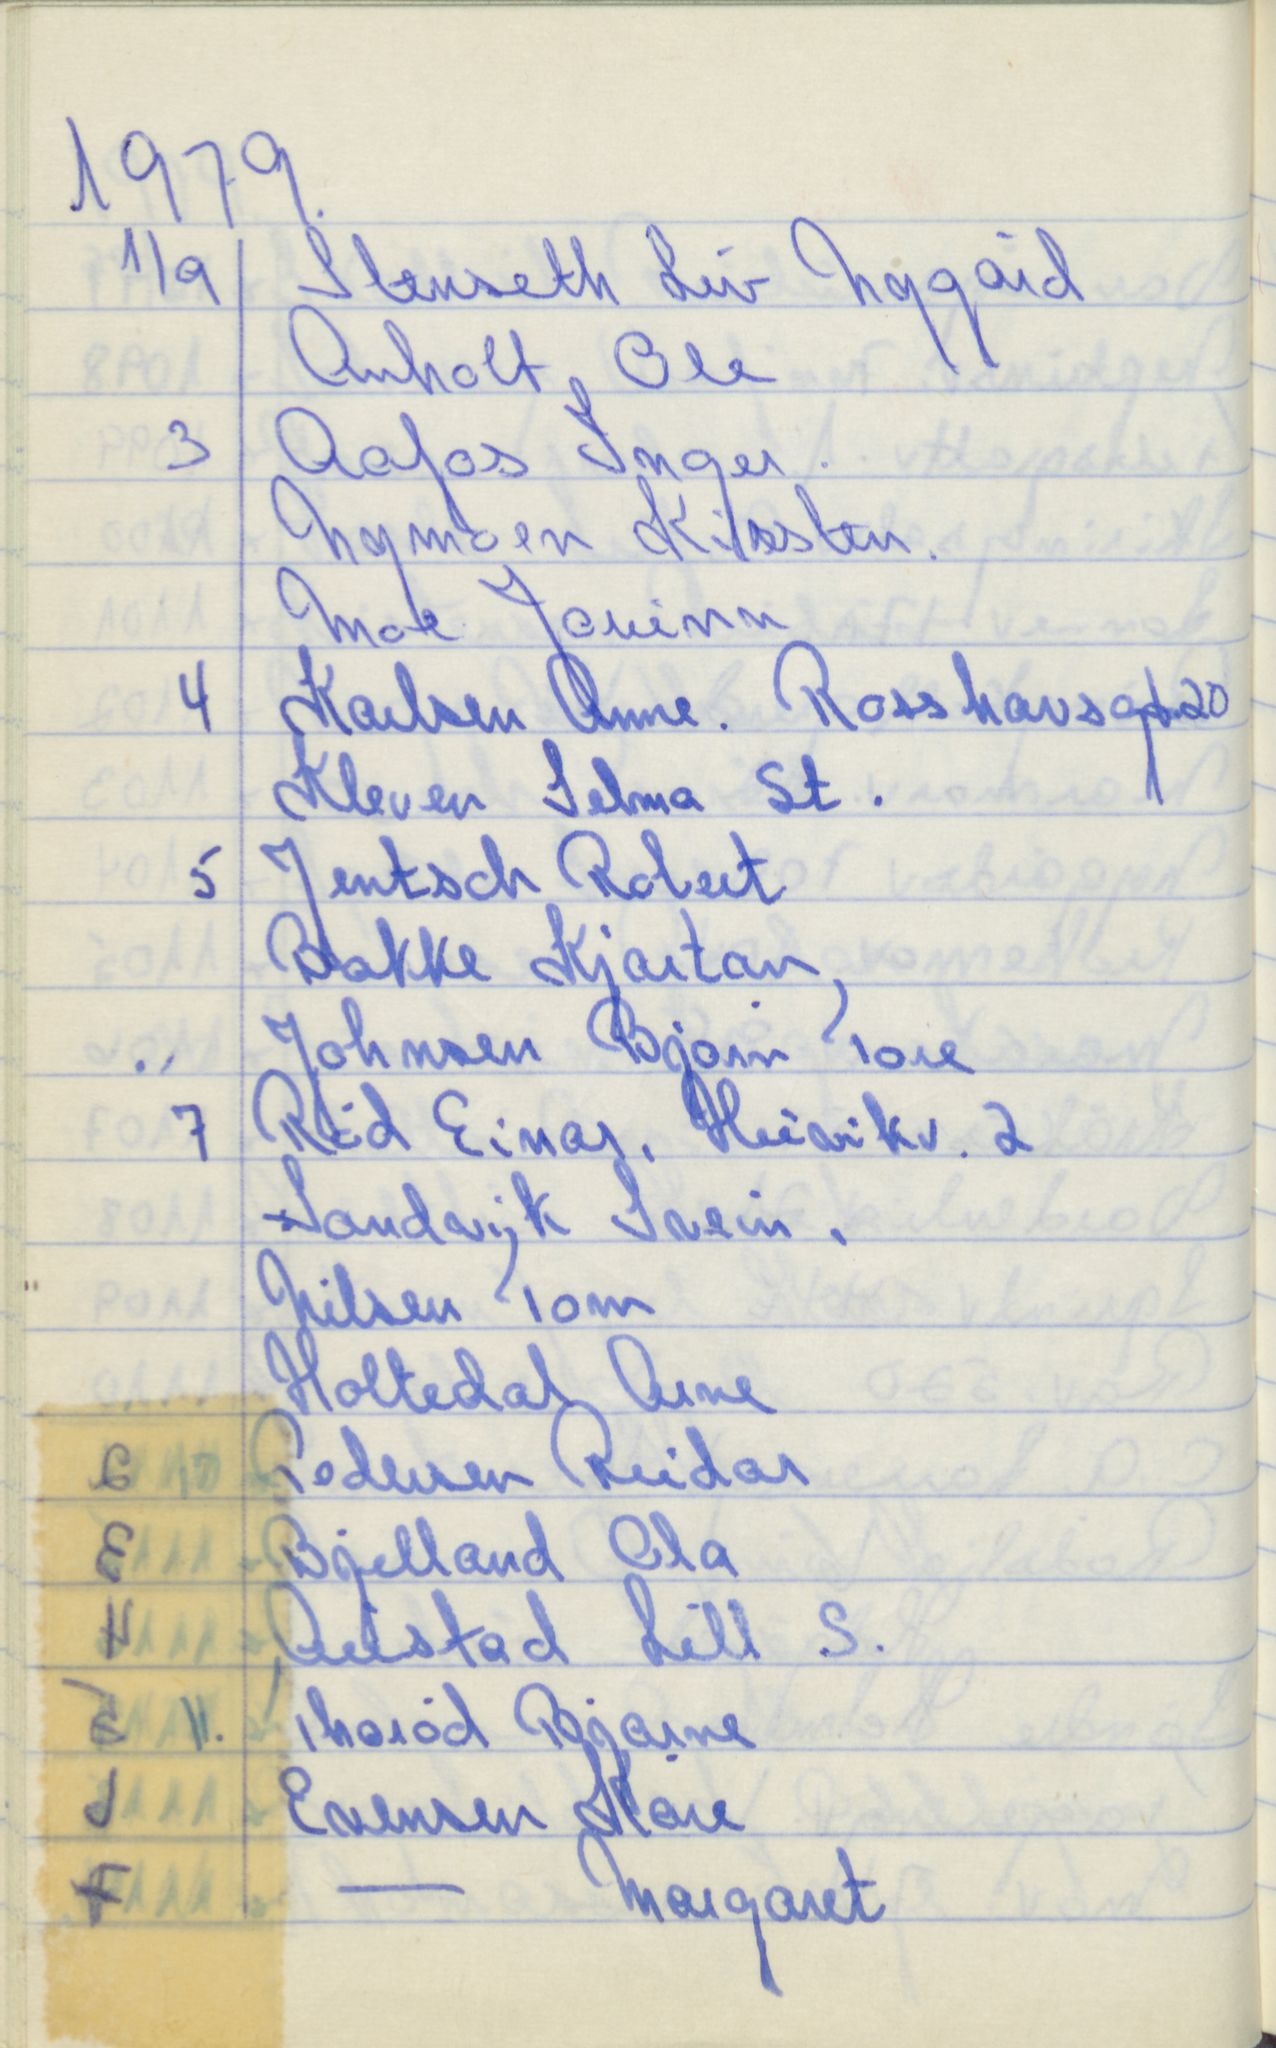 1979.
1/9 Stenseth Liv Nygård
Anholt, Ole
3 Aafos Inger.
Nymoen Kirsten.
Moe Jorunn
4 Karlsen Anne. Rosshavsgt 20
Kleven Selma St.
5 Jentsch Robert
Bakke Kjartan,
Johnsen Bjørn Tore
7 Rød Einar, 2
Sandvik Svein.
Nilsen Tom
Holtedal Arne
Pedersen Reidar
Bjelland Ola
Aurstad Lill S.
11. Thorød Bjarne
Evensen Kåre
— Margaret